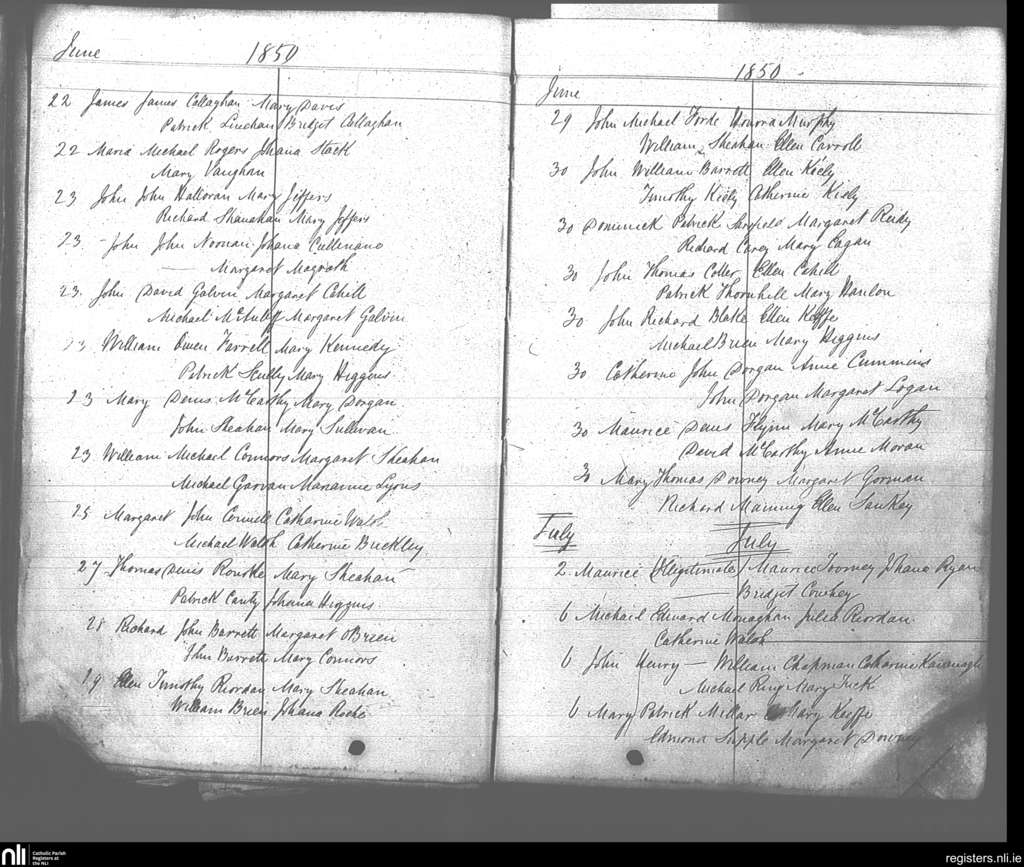 June 1850
22 James James Callaghan Mary Davis
Patrick Linehan Bridget Callaghan
22 Maria Michael Rogers Johana Stack
Mary Vaughan
23 John John Halloran Mary Jeffers
Richard Shanahan Mary Jeffers
23 John John Noonan Johana Cullinane
Margaret Magrath
23 John David Galvin Margaret Cahill
Michael McAuliff Margaret Galvin
23 William Owen Farrell Mary Kennedy
Patrick Scully Mary Higgins
23 Mary Denis McCarthy Mary Dorgan
John Sheahan Mary Sullivan
23 William Michael Connors Margaret Sheahan
Michael Garvan Marianne Lyons
25 Margaret John Connell Catharine Walsh
Michael Walsh Catherine Buckley
27 Thomas Denis Rourke Mary Sheahan
Patrick Canty Johana Higgins
28 Richard John Barrett Margaret OBrien
John Barrett Mary Connors
19 Ellen Timothy Riordan Mary Sheahan
William Brien Johana Roche
1850
June
29 John Michael Forde Honora Murphy
William Sheahan Ellen Carroll
30 John William Barrett Ellen Kiely
Timothy Kiely Catherine Kiely
30 Dominick Patrick Sarsfield Margaret Reidy
Richard Carey Mary Eagan
30 John Thomas Coller Ellen Cahill
Patrick Thornhill Mary Hanlon
30 John Richard Blake Ellen Keffe
Michael Brien Mary Higgins
30 Catherine John Dorgan Anne Cummins
John Dorgan Margaret Logan
30 Maurice Denis Flynn Mary McCarthy
David McCarthy Anne Moran
30 Mary Thomas Downey Margaret Gorman
Richard Manning Ellen Sankey
July July
2 Maurice (Illegitimate) Maurice Toomey Johana Ryan
Bridget Cowhey
6 Michael Edward Monaghan Julia Riordan
Catherine Walsh
6 John Henry — William Chapman Catharine Kavanagh
Michael Ring Mary Tuck
6 Mary Patrick Millar Mary Keeffe
Edmond Supple Margaret Downey
nli Catholic Parish
Registers at
the NLI
registers.nli.ie